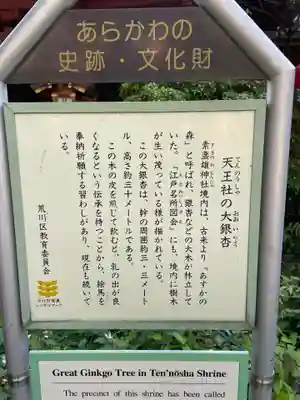 あらかわの
史跡・文化財
天王社の大銀杏
てんのうしゃ
おおいちょう
素盞雄神社境内は、古来より『あすかの
すさのおじんじゃ
森』と呼ばれ、銀杏などの大木が林立して
いた。『江戸名所図会』にも、境内に樹木
が生い茂っている様が描かれている。
この大銀杏は、幹の周囲約三・三メート
ル、高さ約三十メートルである。
この木の皮を煎じて飲むと、乳の出が良
くなるという伝承を持つことから、絵馬を
奉納祈願する習わしがあり、現在も続いて
いる。
荒川区教育委員会
Great Ginkgo Tree in Ten'nōsha Shrine
The precinct of this shrine has been called